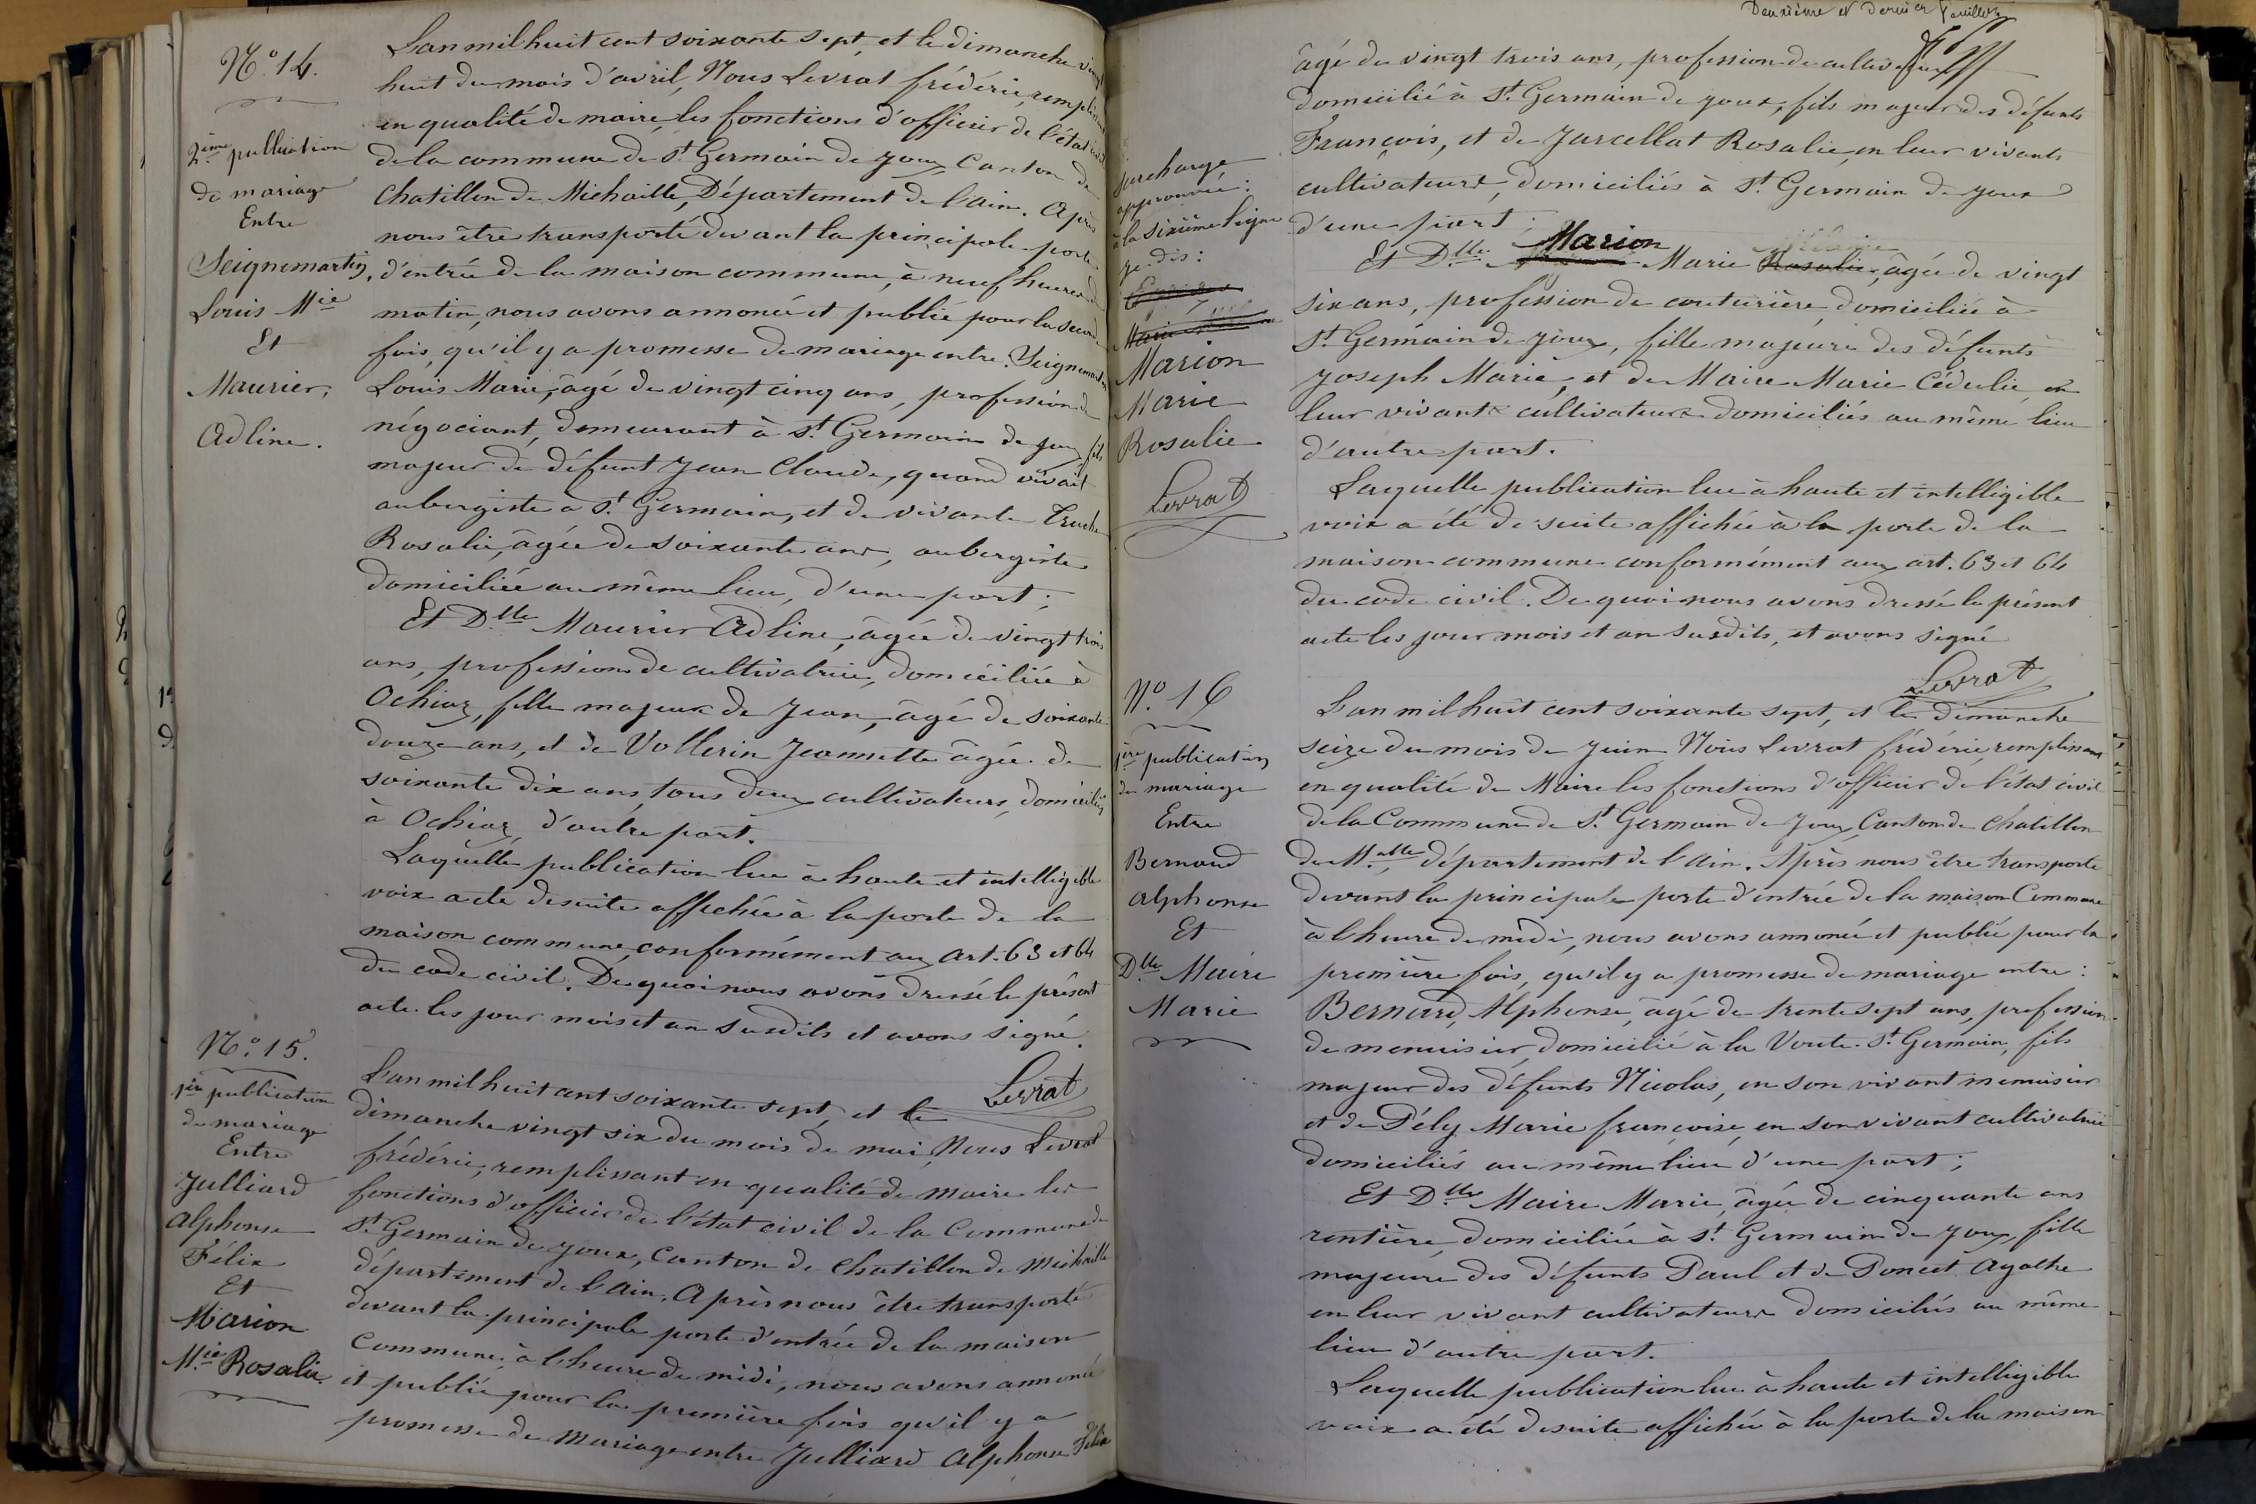 N.o 14.
2ème publication
de mariage
Entre
Seignemartin,
Louis Mie
Et
Maurier,
Adline.
L'an mil huit cent soixante sept, et le dimanche vingt
huit du mois d'avril, Nous Levrat frédéric, remplissant
en qualité de maire, les fonctions d'officier de l'état civil
de la commune de St Germain de Joux, Canton de
Chatillon de Michaille, Département de l'ain. Après
nous être transporté devant la principale porte
d'entrée de la maison commune, à neuf heures du
matin, nous avons annoncé et publié pour la seconde
fois, qu'il y a promesse de mariage entre: Seignemartin
Louis Marie, âgé de vingt cinq ans, profession de
négociant, demeurant à St Germain de Joux, fils
majeur de défunt Jean Claude, quand vivait
aubergiste à St Germain, et de vivante Truche
Rosalie, âgée de soixante ans, aubergiste
domiciliée au même lieu, d'une part;
Et Dlle Maurier Adline, âgée de vingt trois
ans, profession de cultivatrice, domiciliée à
Ochiaz, fille majeure de Jean, âgé de soixante
douze ans, et de Vollerin Jeannette âgée de
soixante dix ans, tous deux cultivateurs, domiciliés
à Ochiaz, d'autre part.
Laquelle publication lue à haute et intelligible
voix a été desuite affichée à la porte de la
maison commune, conformément aux art. 63 et 64
du code civil. De quoi nous avons dressé le présent
acte les jour mois et an susdits et avons signé.
Levrat
N.o 15.
1ère publication
de mariage
Entre
Julliard
Alphonse
Félix
Et
Marion
Mie Rosalie.
L'an mil huit cent soixante sept, et le
dimanche vingt six du mois de mai, Nous Levrat
frédéric, remplissant en qualité de maire les
fonctions d'officier de l'état civil de la Commune de
St Germain de Joux, Canton de Chatillon de Michaille
département de l'ain. Après nous être transporté
devant la principale porte d'entrée de la maison
Commune, à l'heure de midi, nous avons annoncé
et publié pour la première fois qu'il y a
promesse de mariage entre Julliard Alphonse Félix
Deuxième et dernier feuillet
âgé de vingt trois ans, profession de cultivateur
domicilié à St Germain de Joux, fils majeur des défunts
François, et de Jarcellat Rosalie, en leur vivants
cultivateurs, domiciliés à St Germain de Joux
d'une part;
Et Dlle Marion Marie Rosalie, âgée de vingt
six ans, profession de couturière, domiciliée à
St Germain de Joux, fille majeure des défunts
Joseph Marie, et de Maire Marie Cédulie en
leur vivants cultivateurs domiciliés au même lieu
d'autre part.
Laquelle publication lue à haute et intelligible
voix a été de suite affichée à la porte de la
maison commune conformément aux art. 63 et 64
du code civil. De quoi nous avons dressé le présent
acte les jour mois et an susdits, et avons signé
Levrat
Surcharge
approuvée:
à la sixième ligne
je dis:
Marion
Marie
Rosalie
Levrat
N.o 16
1ère publication
de mariage
Entre
Bernard
Alphonse
Et
Dlle Maire
Marie
L'an mil huit cent soixante sept, et le dimanche
seize du mois de Juin Nous Levrat frédéric, remplissant
en qualité de Maire les fonctions d'officier de l'état civil
de la Commune de St Germain de Joux, Canton de Chatillon
de M.aille, département de l'Ain. Après nous être transporté
devant la principale porte d'entrée de la maison Commune
à l'heure de midi, nous avons annoncé et publié pour la
première fois, qu'il y a promesse de mariage entre:
Bernard, Alphonse, âgé de trente sept ans, profession
de menuisier, domicilié à la Voute St Germain, fils
majeur des défunts Nicolas, en son vivant menuisier
et de Pély Marie françoise, en son vivant cultivatrice
domiciliés au même lieu d'une part;
Et Dlle Maire Marie, âgée de cinquante ans
rentière, domiciliée à St Germain de Joux, fille
majeure des défunts Paul et de Poncet Agathe
en leur vivant cultivateurs domiciliés au même
lieu d'autre part.
Laquelle publication lue à haute et intelligible
voix a été desuite affichée à la porte de la maison